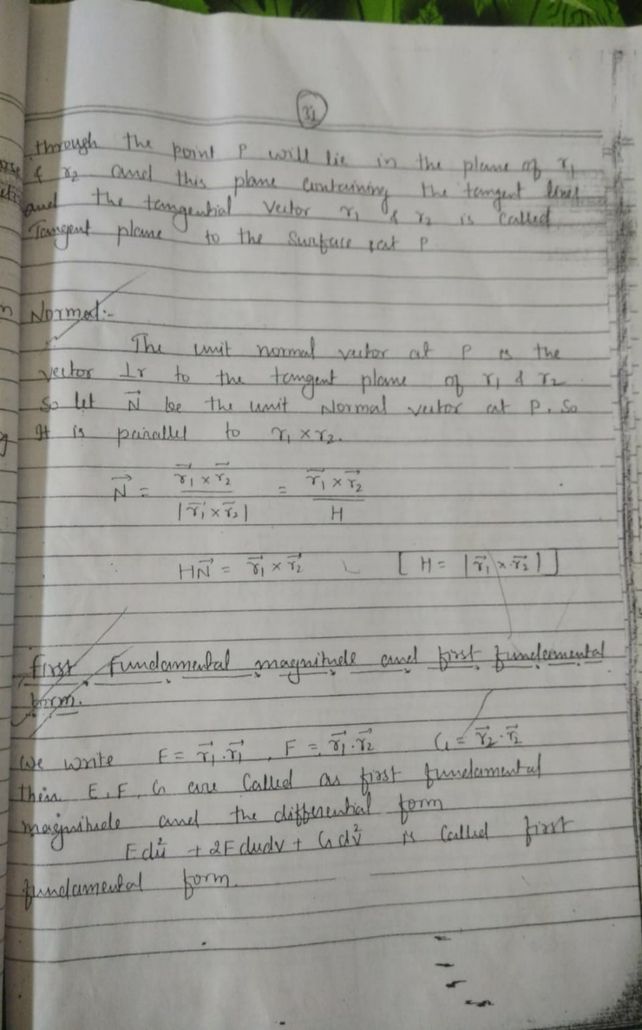 r1
through the point P will lie in the plane of r1
& r2 and this plane containing the tangent lines
and the tangential vector r1 & r2 is called
Tangent plane to the surface at P
Normal:-
The unit normal vector at P is the
vector ⊥r to the tangent plane of r1 & r2
So let N⃗ be the unit Normal vector at P. So
It is parallel to r1 × r2.
N⃗ = (r⃗1 × r⃗2) / |r⃗1 × r⃗2| = (r⃗1 × r⃗2) / H
HN⃗ = r⃗1 × r⃗2 [H = |r⃗1 × r⃗2|]
First Fundamental magnitude and first fundamental
form.
We write E = r⃗1.r⃗1, F = r⃗1.r⃗2 G = r⃗2.r⃗2
then E, F, G are Called as first fundamental
magnitude and the differential form
Edu² + 2Fdudv + Gdv² is Called first
fundamental form.